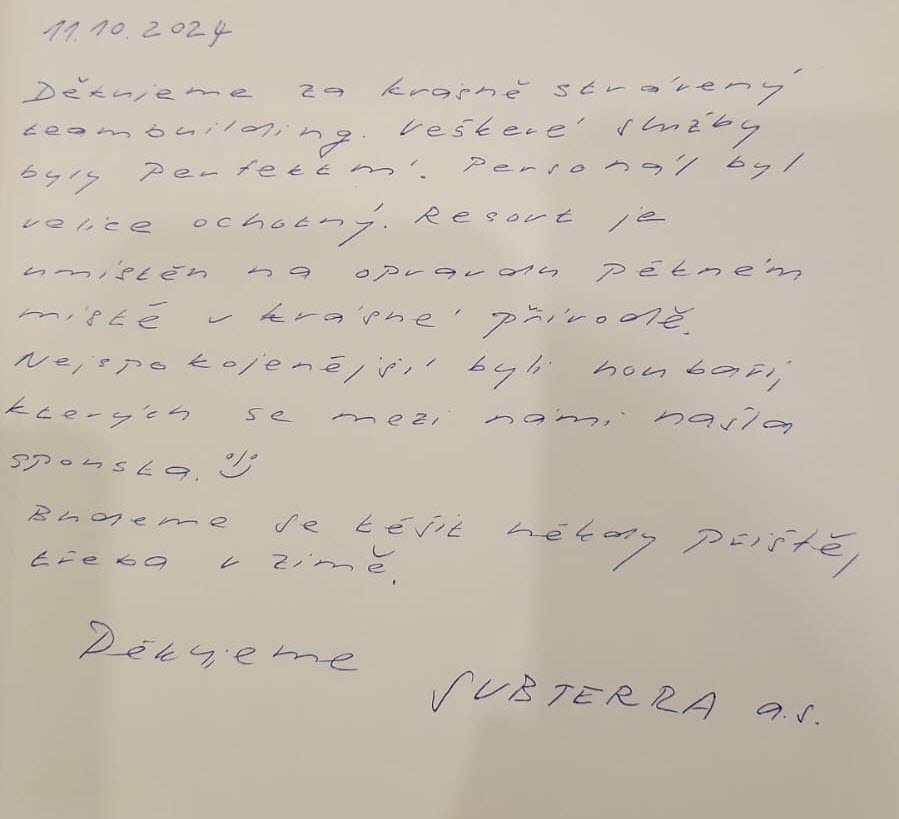 11.10.2024
Děkujeme za krásně strávený
teambuilding. Veškeré služby
byly perfektní. Personál byl
velice ochotný. Resort je
umístěn na opravdu pěkném
místě v krásné přírodě.
Nejspokojenější byli houbaři,
kterých se mezi námi našla
spousta. :)
Budeme se těšit někdy příště,
třeba v zimě.
Děkujeme
SUBTERRA a.s.